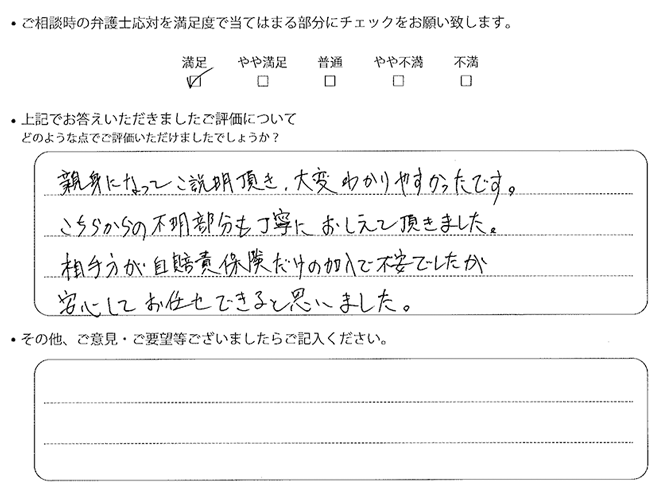 ・ご相談時の弁護士応対を満足度で当てはまる部分にチェックをお願い致します。
満足 やや満足 普通 やや不満 不満
☑ □ □ □ □
・上記でお答えいただきましたご評価について
どのような点でご評価いただけましたでしょうか？
親身になってご説明頂き、大変わかりやすかったです。
こちらからの不明部分も丁寧におしえて頂きました。
相手方が自賠責保険だけの加入で不安でしたが
安心してお任せできると思いました。
・その他、ご意見・ご要望等ございましたらご記入ください。